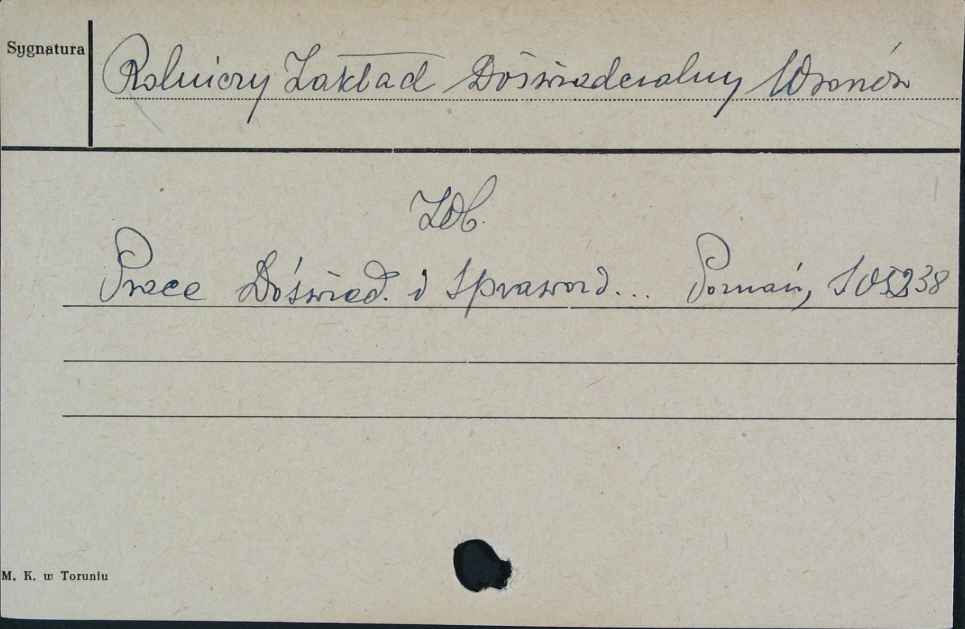 Sygnatura
Rolniczy Zakład Doświadczalny Wronów
Zob.
Prace Doświad. i Sprawozd... Poznań,
M. K. w Toruniu